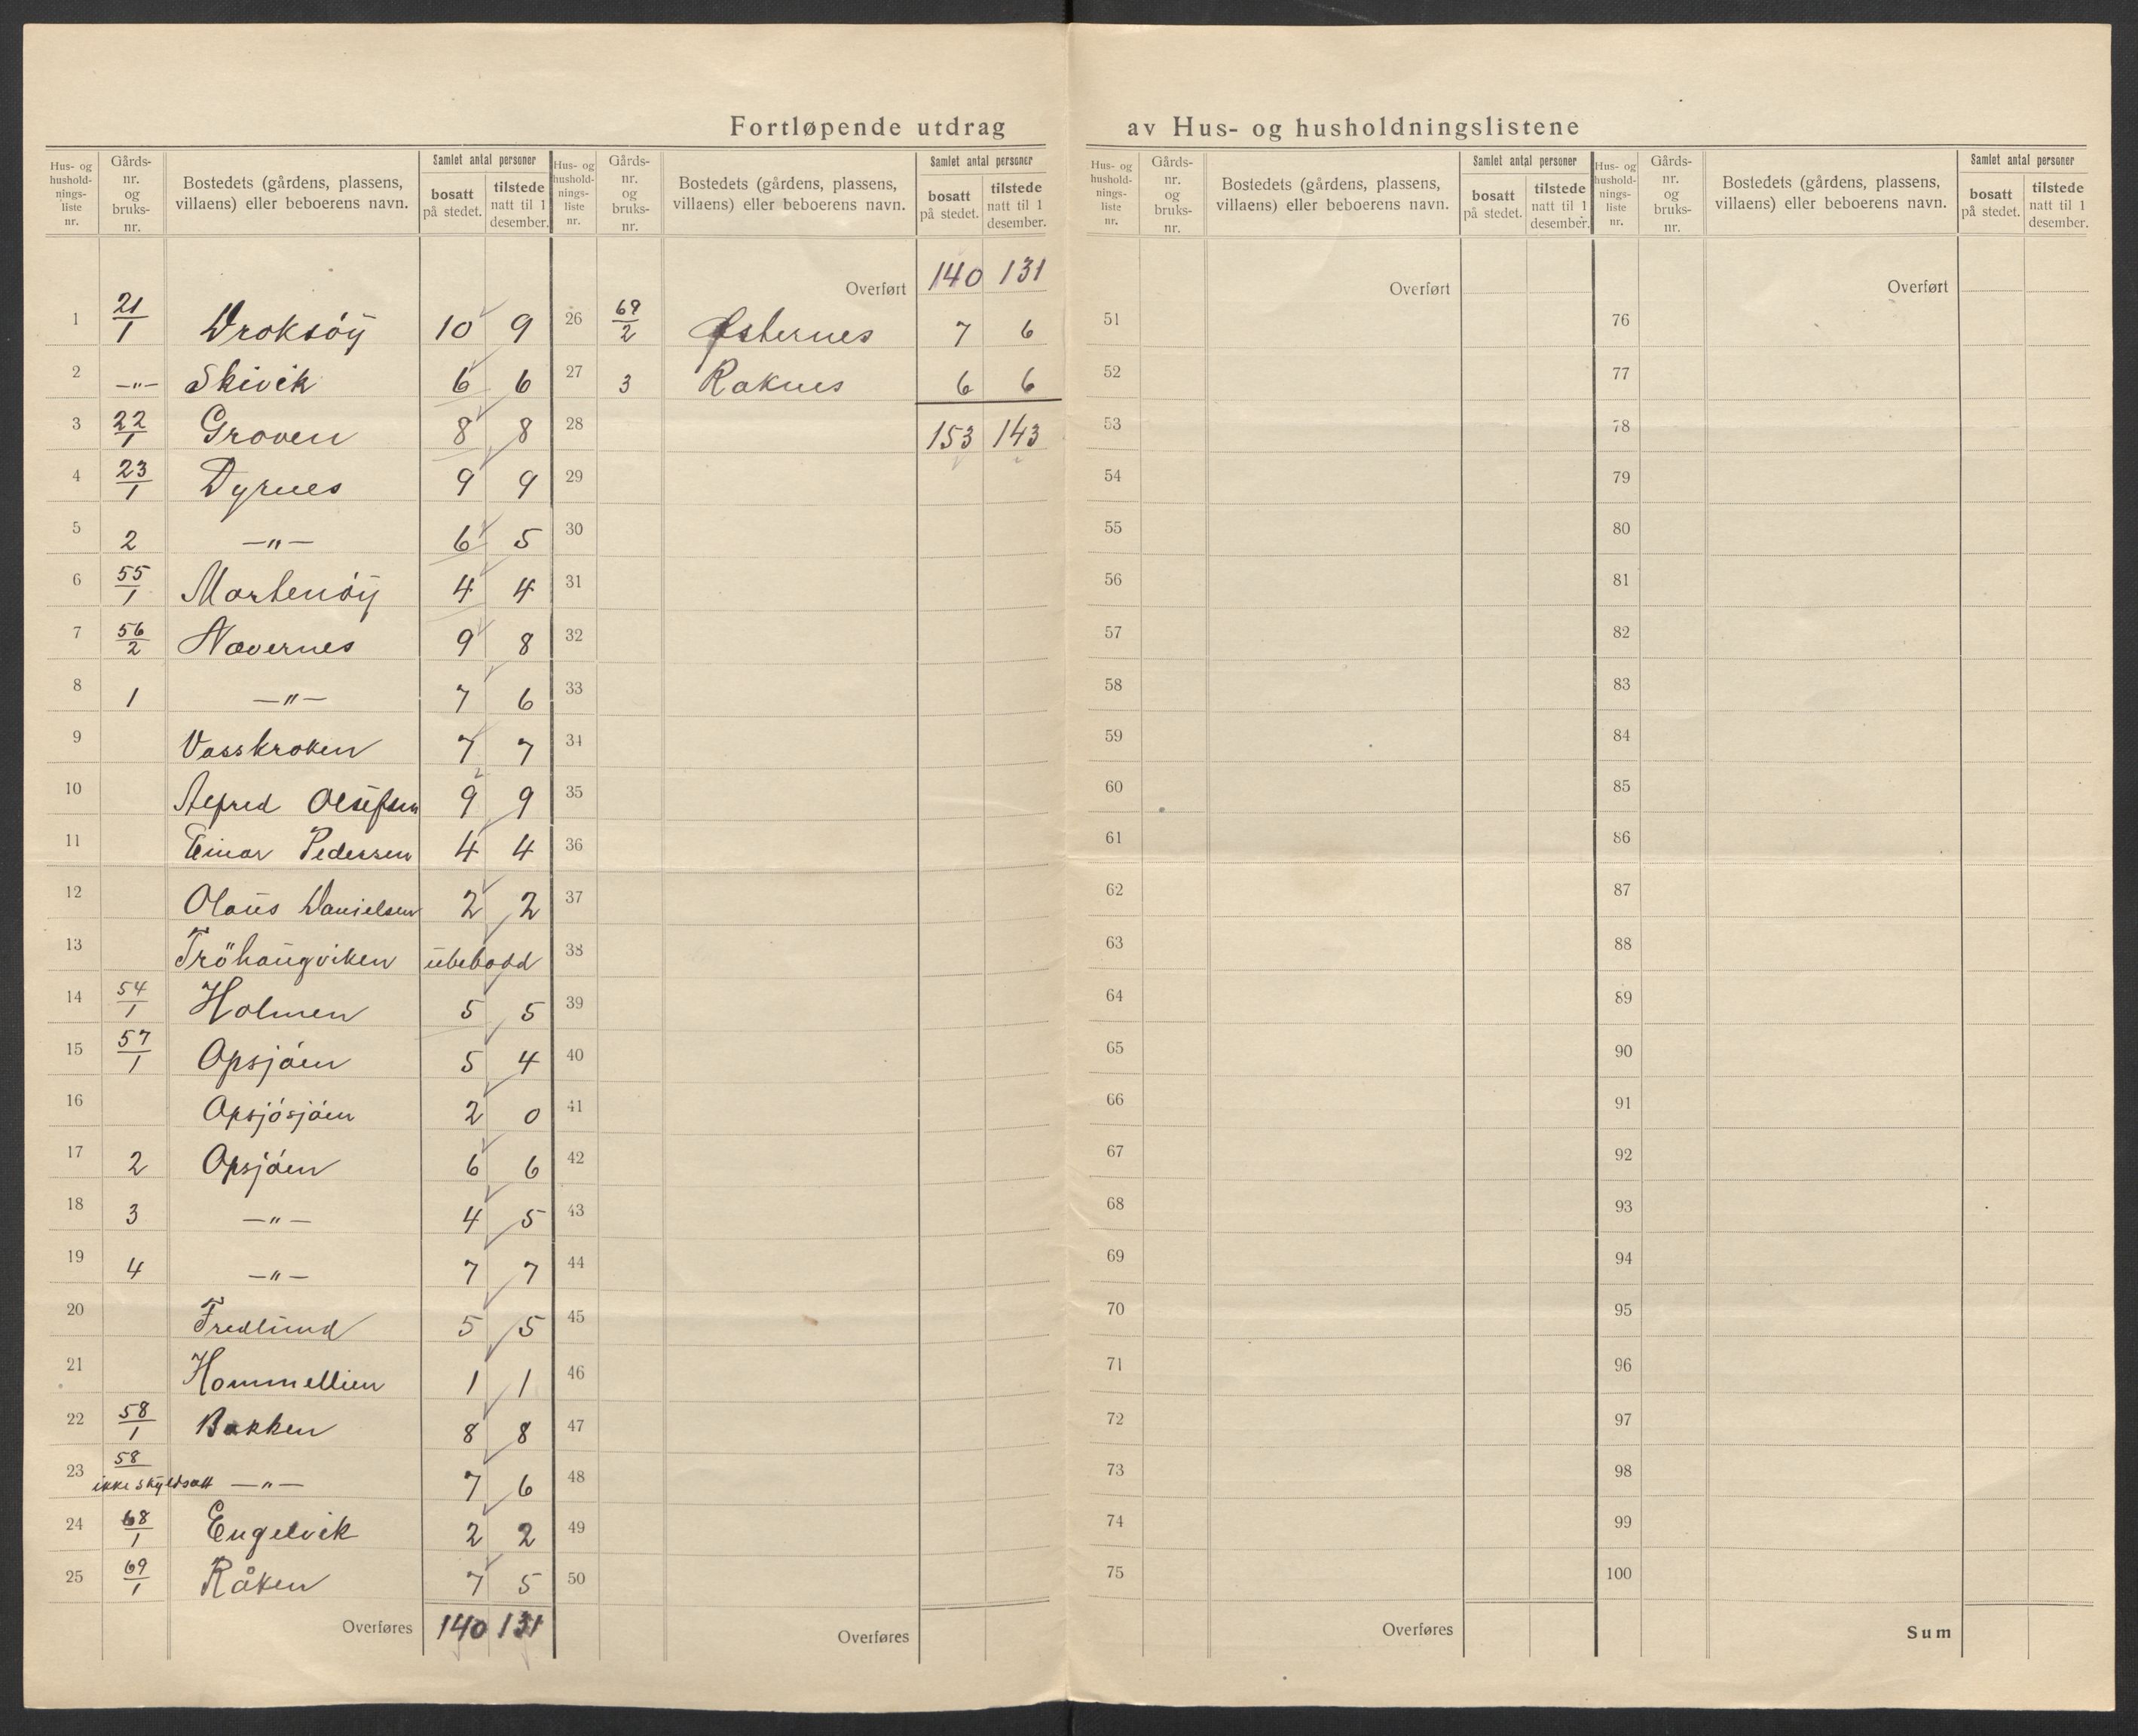 Fortløpende utdrag av Hus- og husholdningslistene
Hus- og husholdnings- liste nr. | Gårds- nr. og bruks- nr. | Bostedets (gårdens, plassens, villaens) eller beboerens navn. | Samlet antal personer | bosatt på stedet. | tilstede natt til 1 desember.
1 21/1 Droksöy 10 9
2 —"— Skivik 6 6
3 22/1 Groven 8 8
4 23/1 Dyrnes 9 9
5 2 —"— 6 5
6 55/1 Martenöy 4 4
7 56/2 Nævernes 9 8
8 1 —"— 7 6
9 Vasskroken 7 7
10 Alfred Olufsen 9 9
11 Einar Pedersen 4 4
12 Olaus Danielsen 2 2
13 Tröhaugviken ubebodd
14 54/1 Holmen 5 5
15 57/1 Opsjöen 5 4
16 Opsjösjöen 2 0
17 2 Opsjöen 6 6
18 3 —"— 4 5
19 4 —"— 7 7
20 Fredlund 5 5
21 Hommellien 1 1
22 58/1 Bakken 8 8
23 58 ikke skyldsatt —"— 7 6
24 68/1 Engelvik 2 2
25 69/1 Råken 7 5
Overføres 140 131
Hus- og hushold- nings- liste nr. | Gårds- nr. og bruks- nr. | Bostedets (gårdens, plassens, villaens) eller beboerens navn. | Samlet antal personer | bosatt på stedet. | tilstede natt til 1 desember.
Overført 140 131
26 69/2 Østernes 7 6
27 3 Raknes 6 6
28 153 143
29
30
31
32
33
34
35
36
37
38
39
40
41
42
43
44
45
46
47
48
49
50
Overføres
Hus- og hushold- nings- liste nr. | Gårds- nr. og bruks- nr. | Bostedets (gårdens, plassens, villaens) eller beboerens navn. | Samlet antal personer | bosatt på stedet. | tilstede natt til 1 desember.
Overført
51
52
53
54
55
56
57
58
59
60
61
62
63
64
65
66
67
68
69
70
71
72
73
74
75
Overføres
Hus- og hushold- nings- liste nr. | Gårds- nr. og bruks- nr. | Bostedets (gårdens, plassens, villaens) eller beboerens navn. | Samlet antal personer | bosatt på stedet. | tilstede natt til 1 desember.
Overført
76
77
78
79
80
81
82
83
84
85
86
87
88
89
90
91
92
93
94
95
96
97
98
99
100
Sum